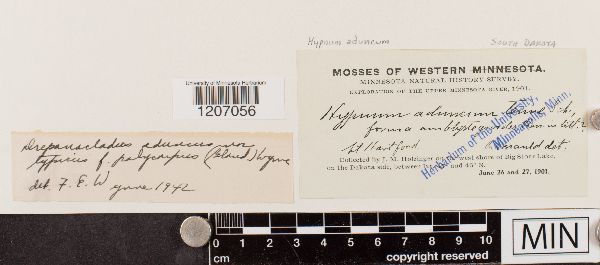 Hypnum aduncum
SOUTH DAKOTA
MOSSES OF WESTERN MINNESOTA.
MINNESOTA NATURAL HISTORY SURVEY.
EXPLORATION OF THE UPPER MINNESOTA RIVER, 1901.
Hypnum aduncum
forma
Ft Hartford. Renauld det.
Collected by J. M. Holzinger on the west shore of Big Stone Lake,
on the Dakota side, between lat. and 45° N.
June 26 and 27, 1901.
Herbarium of the University,
Minneapolis, Minn.
University of Minnesota Herbarium
1207056
Drepanocladus aduncus var
typicus f. polycarpus (Bland) Wynne
det. F. E. W June 1942
0 1 2 3 4 5 6 7 8 9 10
cm copyright reserved
MIN